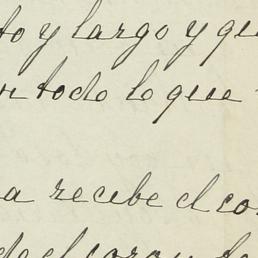 to y largo y que
n todo lo que
a recibe el co
de el corazon